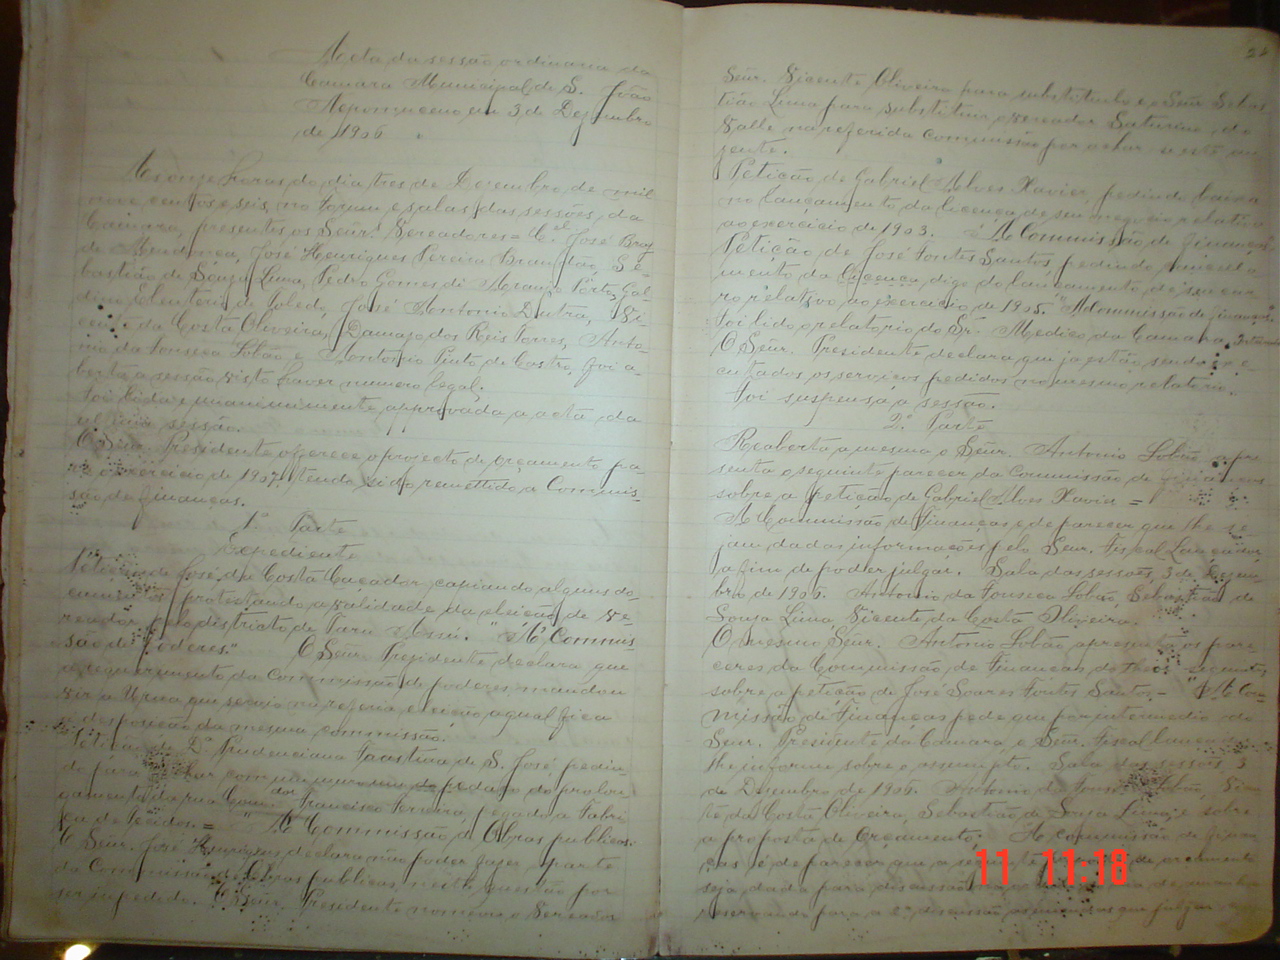 Acta da sessão ordinaria da
Camara Municipal de S. João
Nepomuceno em 3 de Dezembro
de 1906
As onze horas do dia tres de Dezembro de mil
nove centos e seis, no forum e salas das sessões da
Camara, presentes os Senr. Vereadores = Cel. José Braz
de Mendonça, José Henriques Pereira Brandão, Se-
bastião de Souza Lima, Pedro Gomes de Araujo Porto, Gal-
dino Eleuterio de Toledo, José Antonio Dutra, Vi-
cente da Costa Oliveira, Damaso dos Reis Torres, Anto-
nio da Fonseca Lobão e Antonio Pinto de Castro, foi a-
berta a sessão visto haver numero legal.
Foi lida e unanimimente approvada a acta da
ultima sessão.
O Senr. Presidente offerece o projecto de orçamento pa-
ra o exercicio de 1907, tendo sido remettido a Commis-
são de Finanças.
1ª Parte
Expediente
Petição de José da Costa Caçador, capiando alguns do-
cumentos protestando a validade da eleição de Ve-
reador pelo districto de Taru Assú. "A' Commis
são de Poderes." O Senr. Presidente declara que
a requerimento da Commissão de poderes mandou
vir a Urna que serviu na referia eleição a qual fica
a desposição da mesma commissão.
Petição de D. Prudenciana Faustina de S. José, pedin-
do para fechar com um muro um pedaço do prolon-
gamento da rua Comdor Francisco Ferreira, pegado a Fabri
ca de Tecidos = "A' Commissão de Obras publicas.
O Senr. José Henriques declara não poder fazer parte
da Commissão de Obras publicas, neste questão por
ser impedido. O Senr. Presidente nomeiou o Vereador
Senr. Vicente Oliveira para substituil-o e o Senr Sebas
tião Lima para substituir o vereador Saturino do
Valle na referida commissão por achar-se este au
zente.
Petição de Gabriel Alves Xavier, pedindo baixa
no lançamento da licença de seu negocio relativo
ao exercicio de 1903. "A Commissão de Finanças
Petição de José Fontes Santos, pedindo
da Licença digo do lançamento de seu
relativo ao exercicio de 1905. "A Commissão de Finanças
Foi lido o relatorio do Sr. Medico da Camara
O Senr. Presidente declara que ja estão sendo exe
cutados os serviços pedidos no mesmo relatorio.
Foi suspensa a sessão.
2ª Parte
Reaberta a mesma o Senr. Antonio Lobão apre
senta o seguinte parecer da Commissão de Finanças
sobre a petição de Gabriel Alves Xavier =
A Commissão de Finanças é de parecer que lhe se
jam dadas informações pelo Senr. Fiscal Lançador
a fim de poder julgar. Sala das sessões, 3 de Dezem-
bro de 1906. Antonio da Fonseca Lobão, Sebastião de
Souza Lima, Vicente da Costa Oliveira.
O mesmo Senr. Antonio Lobão apresenta os pare
ceres da Commissão de Finanças do theor seguinte,
sobre a petição de José Soares Fontes Santos - "A Com
missão de Finanças pede que por intermedio do
Senr. Presidente da Camara, o Senr. Fiscal Lançador
lhe informe sobre o assumpto. Sala das sessões, 3
de Dezembro de 1906. Antonio da Fonseca Lobão, Vicen
te da Costa Oliveira, Sebastião de Souza Lima, e sobre
a proposta de Orçamento; A commissão de Finan
ças é de parecer que a de orçamento
seja dada para discussão
reservando para a 2ª discussão as que julgar
11 11:18